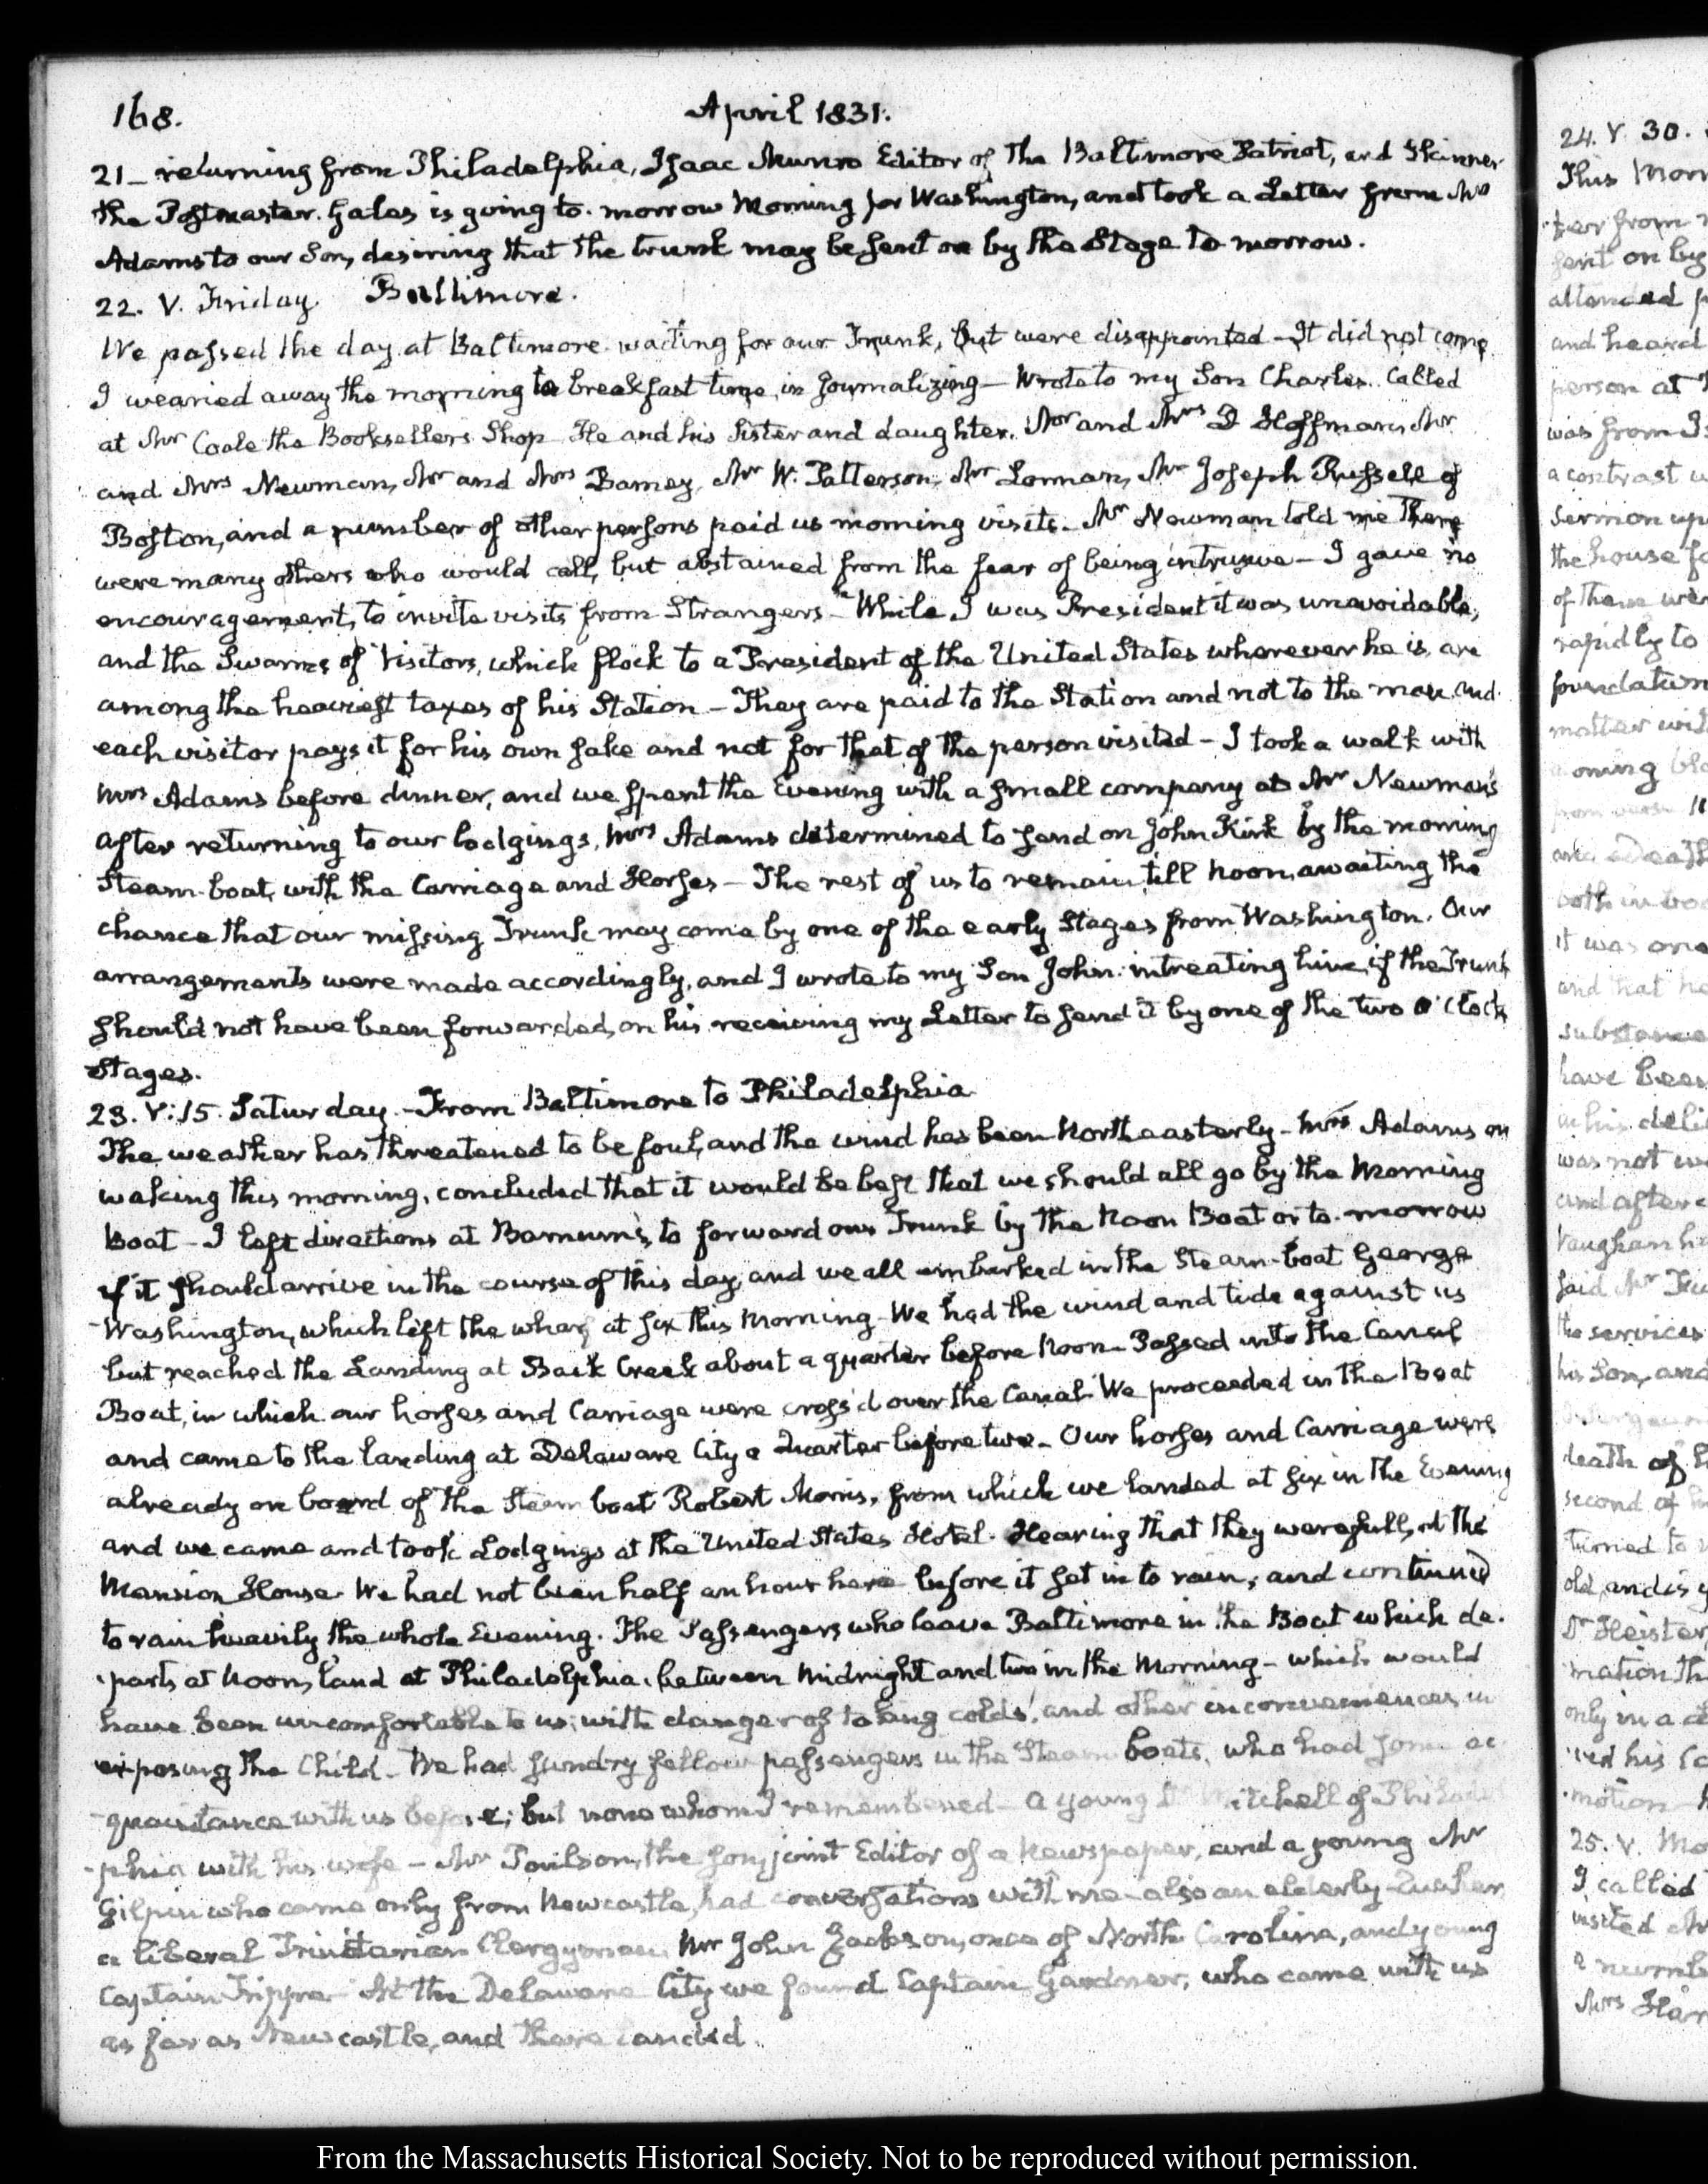 168.
April 1831.
21_ returning from Philadelphia, Isaac Munro Editor of the Baltimore Patriot, and Skinner
the Postmaster. Gales is going to-morrow Morning for Washington, and took a Letter from Mrs
Adams to our Son, desiring that the trunk may be sent on by the Stage to morrow.
22. V. Friday. Baltimore.
We passed the day at Baltimore waiting for our Trunk, but were disappointed - It did not come
I wearied away the morning to breakfast time, in Journalizing - Wrote to my Son Charles. Called
at Mr Coale the Booksellers Shop - He and his Sister and daughter, Mr and Mrs D Hoffman, Mr
and Mrs Newman, Mr and Mrs Barney, Mr W. Patterson, Mr Lorman, Mr Joseph Russell of
Boston, and a number of other persons paid us morning visits. Mr Newman told me there
were many others who would call, but abstained from the fear of being intrusive - I gave no
encouragement, to invite visits from Strangers - While I was President it was unavoidable,
and the Swarms of Visitors, which flock to a President of the United States wherever he is, are
among the heaviest taxes of his Station - They are paid to the Station and not to the man. And
each visitor pays it for his own sake and not for that of the person visited - I took a walk with
Mrs Adams before dinner, and we spent the Evening with a small company at Mr Newman's
After returning to our lodgings, Mrs Adams determined to send on John Kirk by the morning
Steam-boat, with the Carriage and Horses - The rest of us to remain till Noon, awaiting the
chance that our missing Trunk may come by one of the early Stages from Washington. Our
arrangements were made accordingly, and I wrote to my Son John intreating him, if the Trunk
should not have been forwarded, on his receiving my Letter to send it by one of the two o'clock
Stages.
23. V:15. Saturday - From Baltimore to Philadelphia
The weather has threatened to be foul, and the wind has been Northeasterly - Mrs Adams on
waking this morning, concluded that it would be best that we should all go by the Morning
Boat - I left directions at Barnum's, to forward our Trunk by the Noon Boat or to-morrow
if it should arrive in the course of this day, and we all embarked in the Steam-boat George
Washington, which left the wharf at six this Morning - We had the wind and tide against us
but reached the Landing at Back Creek about a quarter before Noon - Passed into the Canal
Boat, in which our horses and Carriage were cross'd over the Canal. We proceeded in the Boat
and came to the landing at Delaware City a Quarter before two - Our horses and Carriage were
already on board of the Steam boat Robert Morris, from which we landed at six in the Evening
and we came and took Lodgings at the United States Hotel. Hearing that they were full, at the
Mansion House. We had not been half an hour here before it set in to rain, and continued
to rain heavily the whole Evening. The Passengers who leave Baltimore in the Boat which de-
parts at Noon, land at Philadelphia between Midnight and two in the Morning - which would
have been uncomfortable to us, with danger of taking colds, and other inconveniences in
exposing the Child - We had sundry fellow passengers in the Steam boats, who had some ac-
quaintance with us before; but none whom I remembered - A young Dr Mitchell of Philadel
-phia with his wife - Mr Poulson, the son, joint Editor of a Newspaper, and a young Mr
Gilpin who came only from Newcastle, had conversations with me - also an elderly Quaker
a liberal Trinitarian Clergyman. Mr John Jackson, once of North Carolina, and young
Captain Trippe - At the Delaware City we found Captain Gardner, who came with us
as far as Newcastle, and there landed.
24. V. 30.
This Morn
ter from
sent on by
attended
and heard
person at
was from
a contrast
Sermon up
the house
of these were
rapidly to
foundation
matter
both in
it was one
and that he
substance
have been
in his deli
was not
and after
Vaughan
said Mr
the services
his Son, and
death of
second of
turned to
old, and is
Dr Heister
mation th
only in a
ved his
motion
25. V. Mo
I called
visited
a numb
Mrs Har
From the Massachusetts Historical Society. Not to be reproduced without permission.